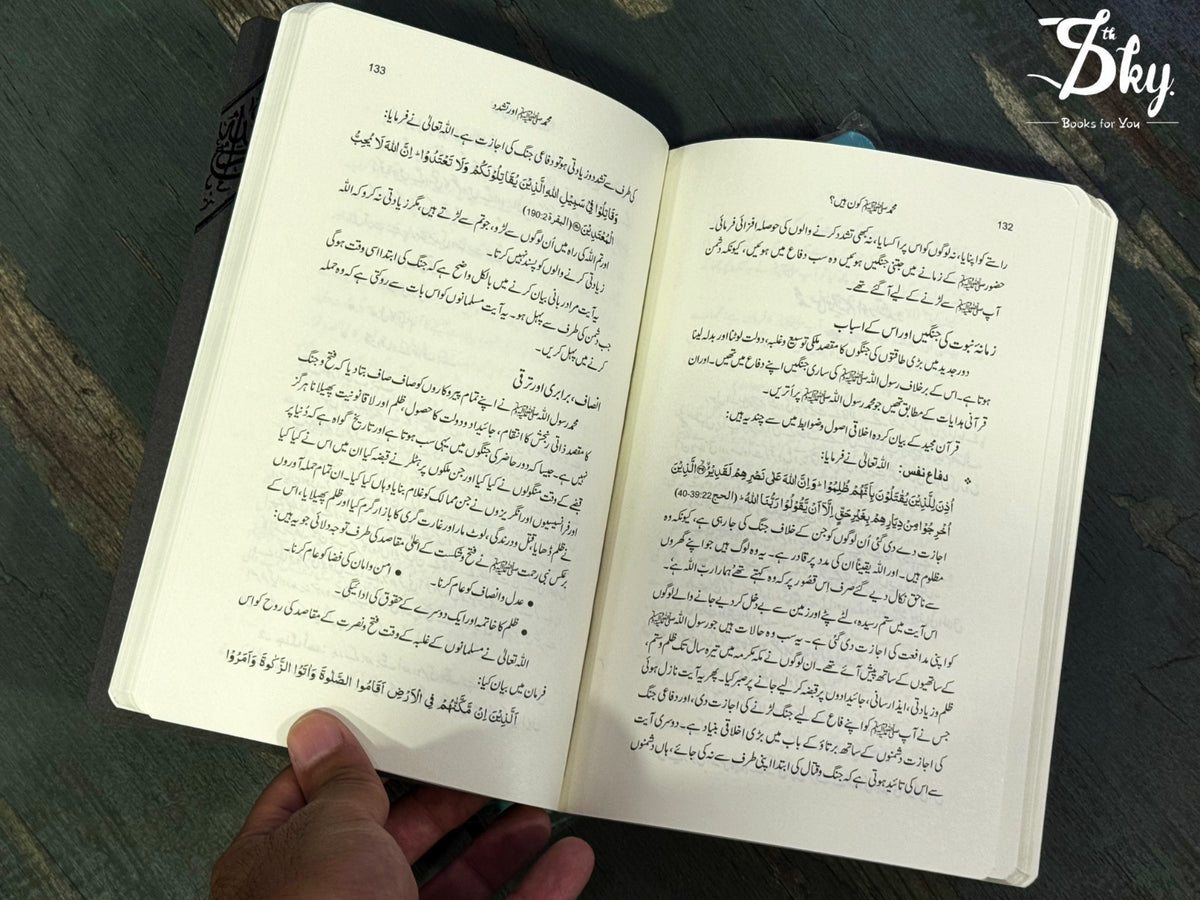 132
محمد ﷺ کون ہیں؟
راستے کو اپنایا، نہ لوگوں کو اس پر اکسایا، نہ کبھی تشدد کرنے والوں کی حوصلہ افزائی فرمائی۔
حضور ﷺ کے زمانے میں جتنی جنگیں ہوئیں وہ سب دفاع میں ہوئیں، کیونکہ دشمن
آپ ﷺ سے لڑنے کے لیے آگئے تھے۔
زمانۂ نبوت کی جنگیں اور اس کے اسباب
دور جدید میں بڑی طاقتوں کی جنگوں کا مقصد ملکی توسیع و غلبہ، دولت لوٹنا اور بدلہ لینا
ہوتا ہے۔ اس کے برخلاف رسول اللہ ﷺ کی ساری جنگیں اپنے دفاع میں تھیں۔ اور ان
قرآنی ہدایات کے مطابق تھیں جو محمد رسول اللہ ﷺ پر اُتریں۔
قرآن مجید کے بیان کردہ اخلاقی اصول و ضوابط میں سے چند یہ ہیں:
دفاع نفس: اللہ تعالیٰ نے فرمایا:
اُذِنَ لِلَّذِيْنَ يُقٰتَلُوْنَ بِاَنَّهُمْ ظُلِمُوْا ۭ وَاِنَّ اللهَ عَلٰي نَصْرِهِمْ لَقَدِيْرُ ۝ الَّذِيْنَ
اُخْرِجُوْا مِنْ دِيَارِهِمْ بِغَيْرِ حَقٍّ اِلَّآ اَنْ يَّقُوْلُوْا رَبُّنَا اللهُ ۭ (الحج 22:39-40)
اجازت دے دی گئی اُن لوگوں کو جن کے خلاف جنگ کی جارہی ہے، کیونکہ وہ
مظلوم ہیں۔ اور اللہ یقیناً ان کی مدد پر قادر ہے۔ یہ وہ لوگ ہیں جو اپنے گھروں
سے ناحق نکال دیے گئے صرف اس قصور پر کہ وہ کہتے تھے ہمارا رب اللہ ہے۔
اس آیت میں ستم رسیدہ، لٹے پٹے اور زمین سے بے دخل کر دیے جانے والے لوگوں
کو اپنی مدافعت کی اجازت دی گئی ہے۔ یہ سب وہ حالات ہیں جو رسول اللہ ﷺ
کے ساتھیوں کے ساتھ پیش آئے تھے۔ ان لوگوں نے مکہ مکرمہ میں تیرہ سال تک ظلم و ستم،
ظلم و زیادتی، ایذا رسانی، جائیدادوں پر قبضہ کر لیے جانے پر صبر کیا۔ پھر یہ آیت نازل ہوئی
جس نے آپ ﷺ کو اپنے دفاع کے لیے جنگ لڑنے کی اجازت دی، اور دفاعی جنگ
کی اجازت دشمنوں کے ساتھ برتاؤ کے باب میں بڑی اخلاقی بنیاد ہے۔ دوسری آیت
سے اس کی تائید ہوتی ہے کہ جنگ و قتال کی ابتدا اپنی طرف سے نہ کی جائے، ہاں دشمنوں
133
محمد ﷺ اور تشدد
کی طرف سے تشدد و زیادتی ہو تو دفاعی جنگ کی اجازت ہے۔ اللہ تعالیٰ نے فرمایا:
وَقَاتِلُوْا فِيْ سَبِيْلِ اللهِ الَّذِيْنَ يُقَاتِلُوْنَكُمْ وَلَا تَعْتَدُوْا ۭ اِنَّ اللهَ لَا يُحِبُّ
الْمُعْتَدِيْنَ ۝ (البقرة 2:190)
اور تم اللہ کی راہ میں اُن لوگوں سے لڑو، جو تم سے لڑتے ہیں، مگر زیادتی نہ کرو کہ اللہ
زیادتی کرنے والوں کو پسند نہیں کرتا۔
یہ آیت مراد ربانی بیان کرنے میں بالکل واضح ہے کہ جنگ کی ابتدا اسی وقت ہوگی
جب دشمن کی طرف سے پہل ہو۔ یہ آیت مسلمانوں کو اس بات سے روکتی ہے کہ وہ حملہ
کرنے میں پہل کریں۔
انصاف، برابری اور ترقی
محمد رسول اللہ ﷺ نے اپنے تمام پیروکاروں کو صاف صاف بتا دیا کہ فتح و جنگ
کا مقصد ذاتی رنجش کا انتقام، جائیداد و دولت کا حصول، ظلم اور لاقانونیت پھیلانا ہرگز
نہیں ہے۔ جیسا کہ دور حاضر کی جنگوں میں یہی سب ہوتا ہے اور تاریخ گواہ ہے کہ دُنیا پر
قبضے کے وقت منگولوں نے کیا کیا اور جن ملکوں پر ہٹلر نے قبضہ کیا ان میں اس نے کیا کیا
اور فرانسیسیوں اور انگریزوں نے جن ممالک کو غلام بنایا وہاں کیا کیا۔ ان تمام حملہ آوروں
نے ظلم ڈھایا، قتل و درندگی، لوٹ مار اور غارت گری کا بازار گرم کیا اور ظلم پھیلایا، اس کے
برعکس نبی رحمت ﷺ نے فتح و شکست کے اعلیٰ مقاصد کی طرف توجہ دلائی جو یہ ہیں:
• عدل و انصاف کو عام کرنا۔ • امن و امان کی فضا کو عام کرنا۔
• ظلم کا خاتمہ اور ایک دوسرے کے حقوق کی ادائیگی۔
اللہ تعالیٰ نے مسلمانوں کے غلبہ کے وقت فتح و نصرت کے مقاصد کی روح کو اس
فرمان میں بیان کیا:
اَلَّذِيْنَ اِنْ مَّكَّنّٰهُمْ فِي الْاَرْضِ اَقَامُوا الصَّلٰوةَ وَاٰتَوُا الزَّكٰوةَ وَاَمَرُوْا
Sky.
th
Books for You